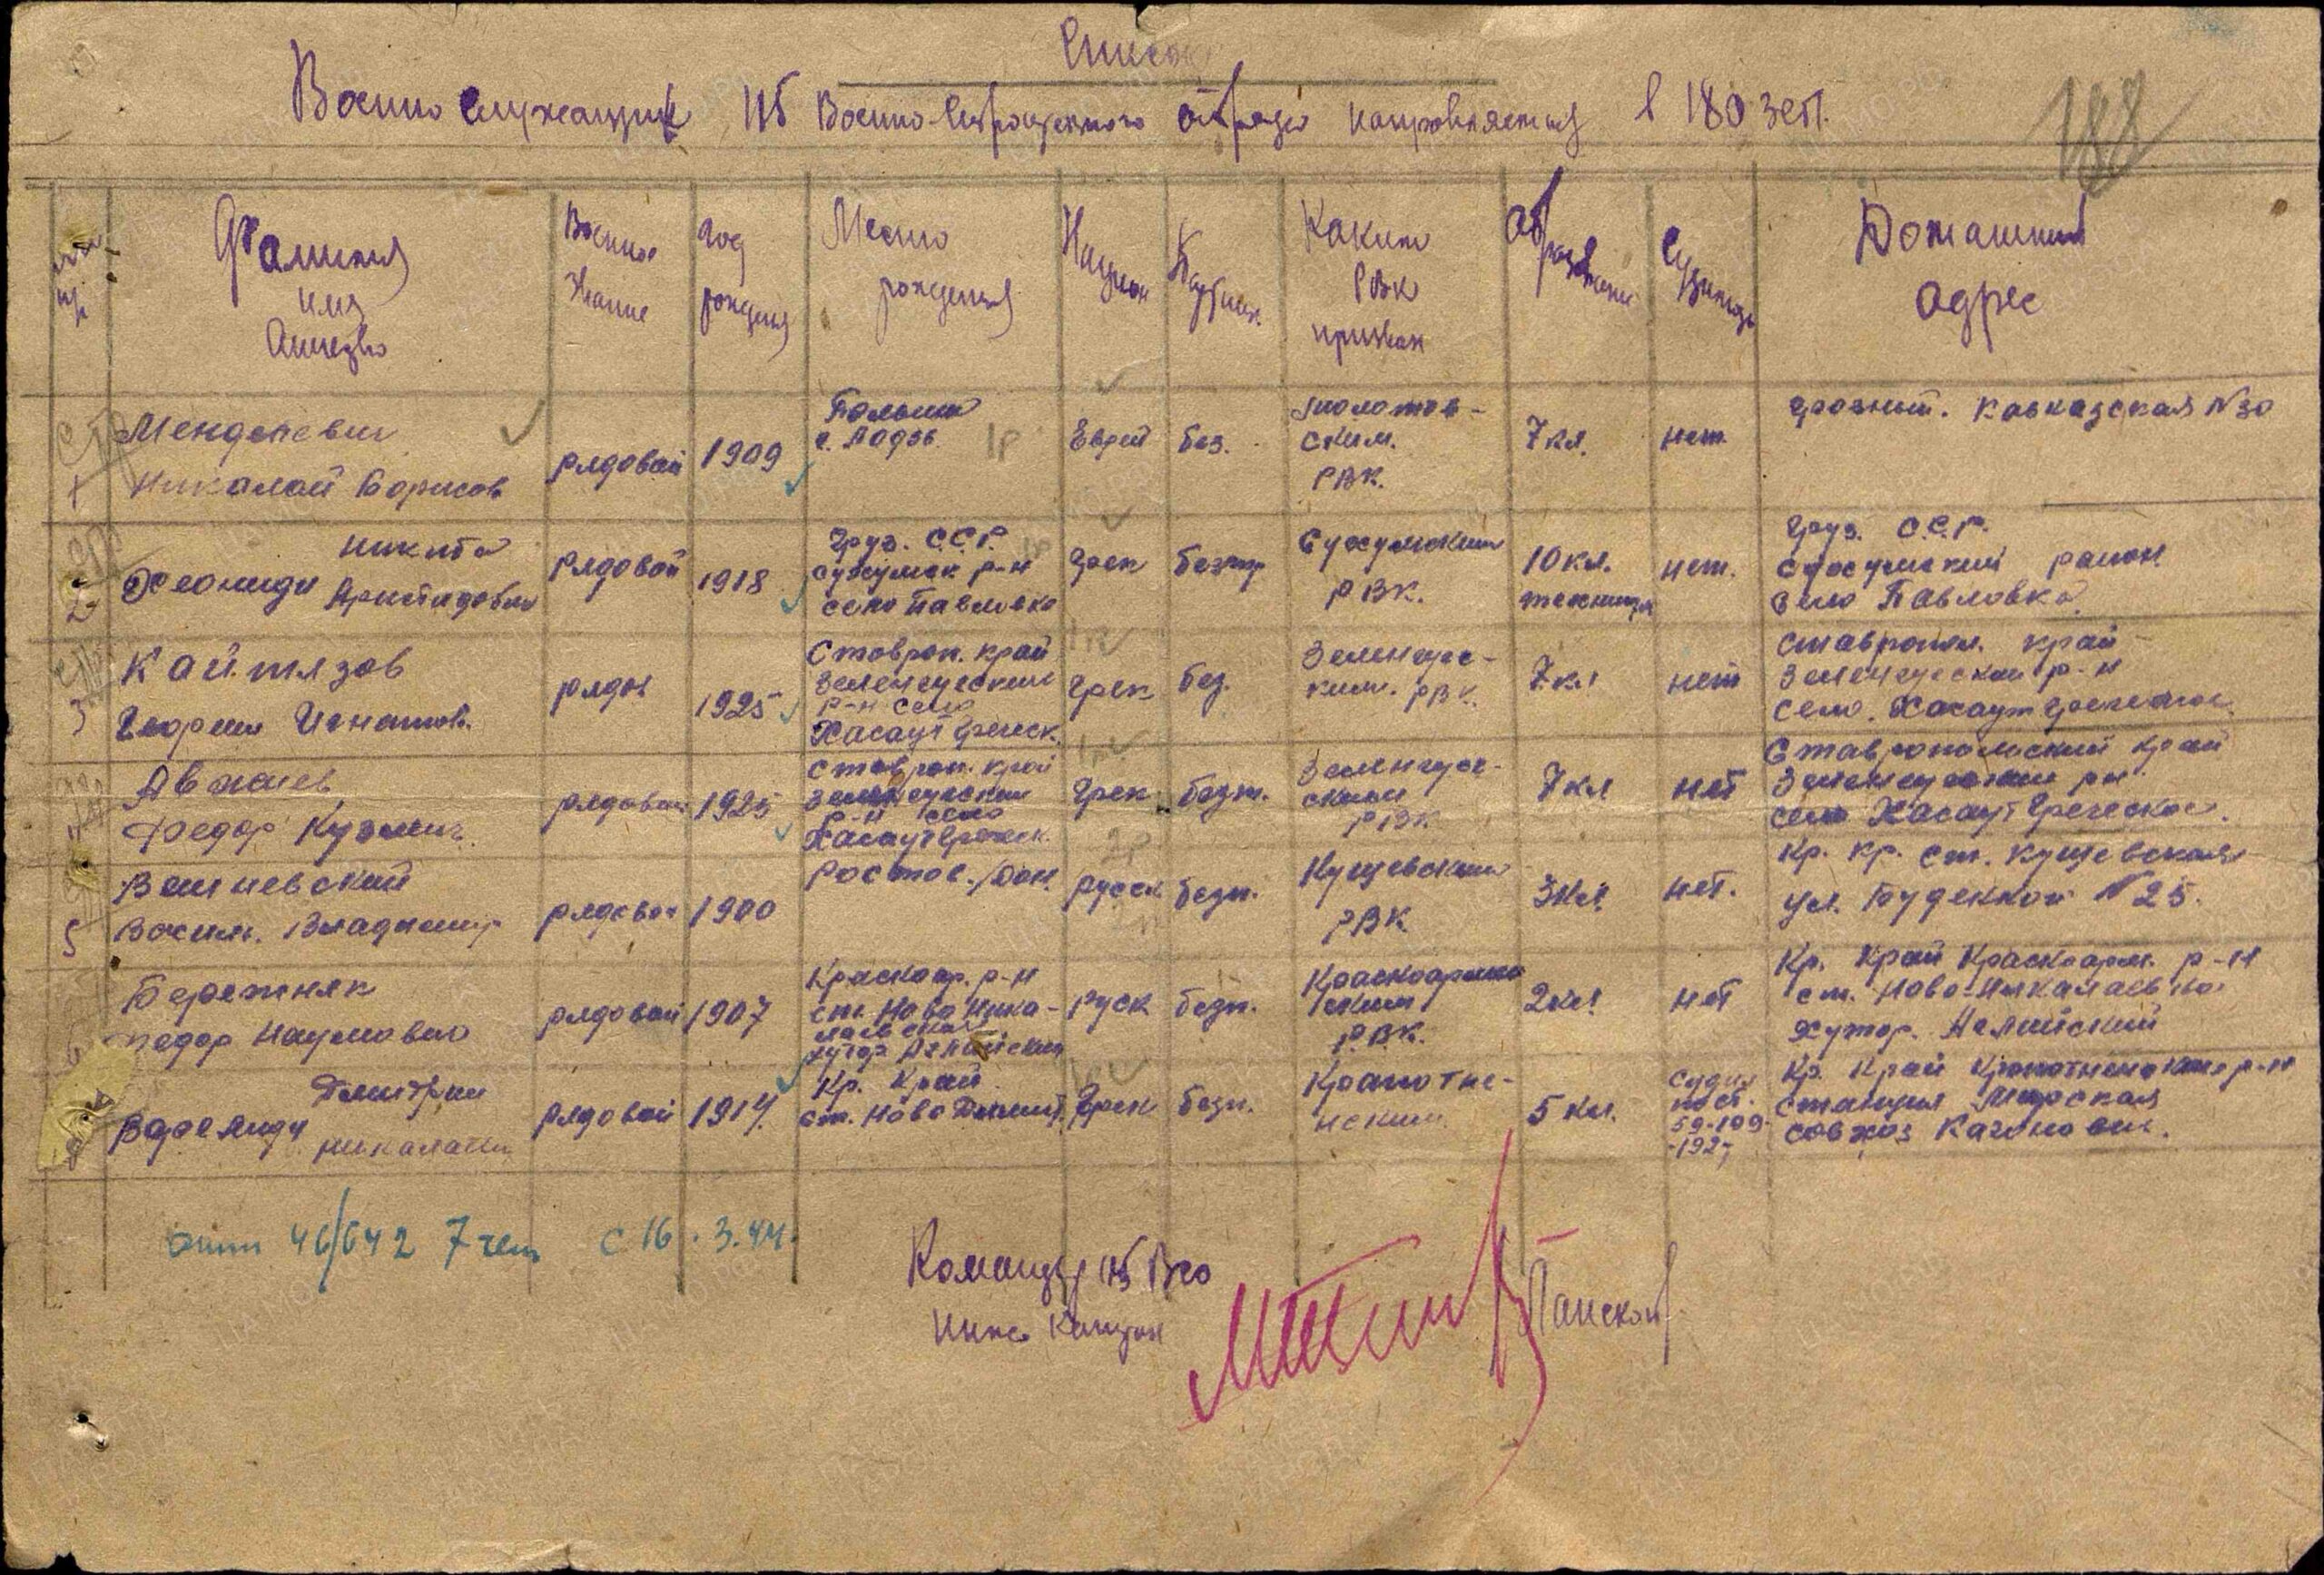 Список
Военно служащих 115 Военно-Строительного отряда направляемых в 180 зсп.
188
Фамилия имя Отчество
Военное звание
год рождения
Место рождения
Национ
Партийн.
Каким РВК призван
Образование
Судимость
Домашний адрес
1 Менделевич Николай Борисов рядовой 1909 Польша г. Лодзь 1Р Еврей без. Молотов-ским. РВК. 7 кл. нет Грозный. Кавказская №30
2 Феониди Никита Аристидович рядовой 1918 Груз. С.С.Р. Сухумск р-н село Павловка 1Р Грек безпр Сухумским РВК. 10 кл. нет. Груз. С.С.Р. Сухумский район село Павловка.
3 Кайтязов Георгии Игнатов. рядов 1925 Ставроп. край Зеленчускии р-н село Хасаут Греческ. Грек без. Зеленчус-ким. РВК. 7 кл нет Ставропол. край Зеленчускои р-н село. Хасаут Греческое.
Авжиев Федор Кузмич. рядовои 1925 Ставроп. край Зеленчускии р-н село Хасаут Греческ. Грек безп. Зеленчук-ским РВК 7 кл нет Ставропольский край Зеленчускии рн. село Хасаут Греческое.
5 Вишневский Васил. Владимир рядовой 1900 Ростов./Дон. 2Р русск безп. Кущевским РВК 3 кл. нет. Кр. кр. ст. Кущевская ул. Буденкой №25.
6 Бережняк Федор Наумович рядовой 1907 Красноар. р-н ст. Ново Нико-лаевская хутор Алтайский руск безп. Красноармей ским Р.В.К. 2 кл. нет Кр. Край Красноарм. р-н ст. Ново-Николаевка Хутор.
Дмитрии Николаеви рядовой 1914 Кр. Край. ст. Ново Дмит. Грек безп. Крапотке-нским. 5 кл. судим пост. 59-109- -192 Кр. Край р-н станция Мирская совхоз Каганович.
отп 46/642 7 чел с 16. 3.44.
Командир 115 Всо
Инж Капитан Панскои